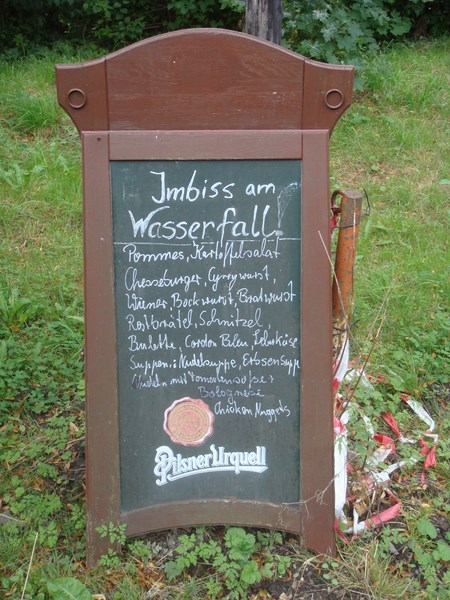 Imbiss am
Wasserfall!
Pommes, Kartoffelsalat
Cheeseburger, Currywurst,
Wiener Bockwurst, Bratwurst
Rostbrätel, Schnitzel,
Bulette, Cordon Bleu, Leberkäse
Suppen: Nudelsuppe, Erbsensuppe
Nudeln mit Tomatensoße +
Bolognese
Chicken Nuggets
Pilsner Urquell